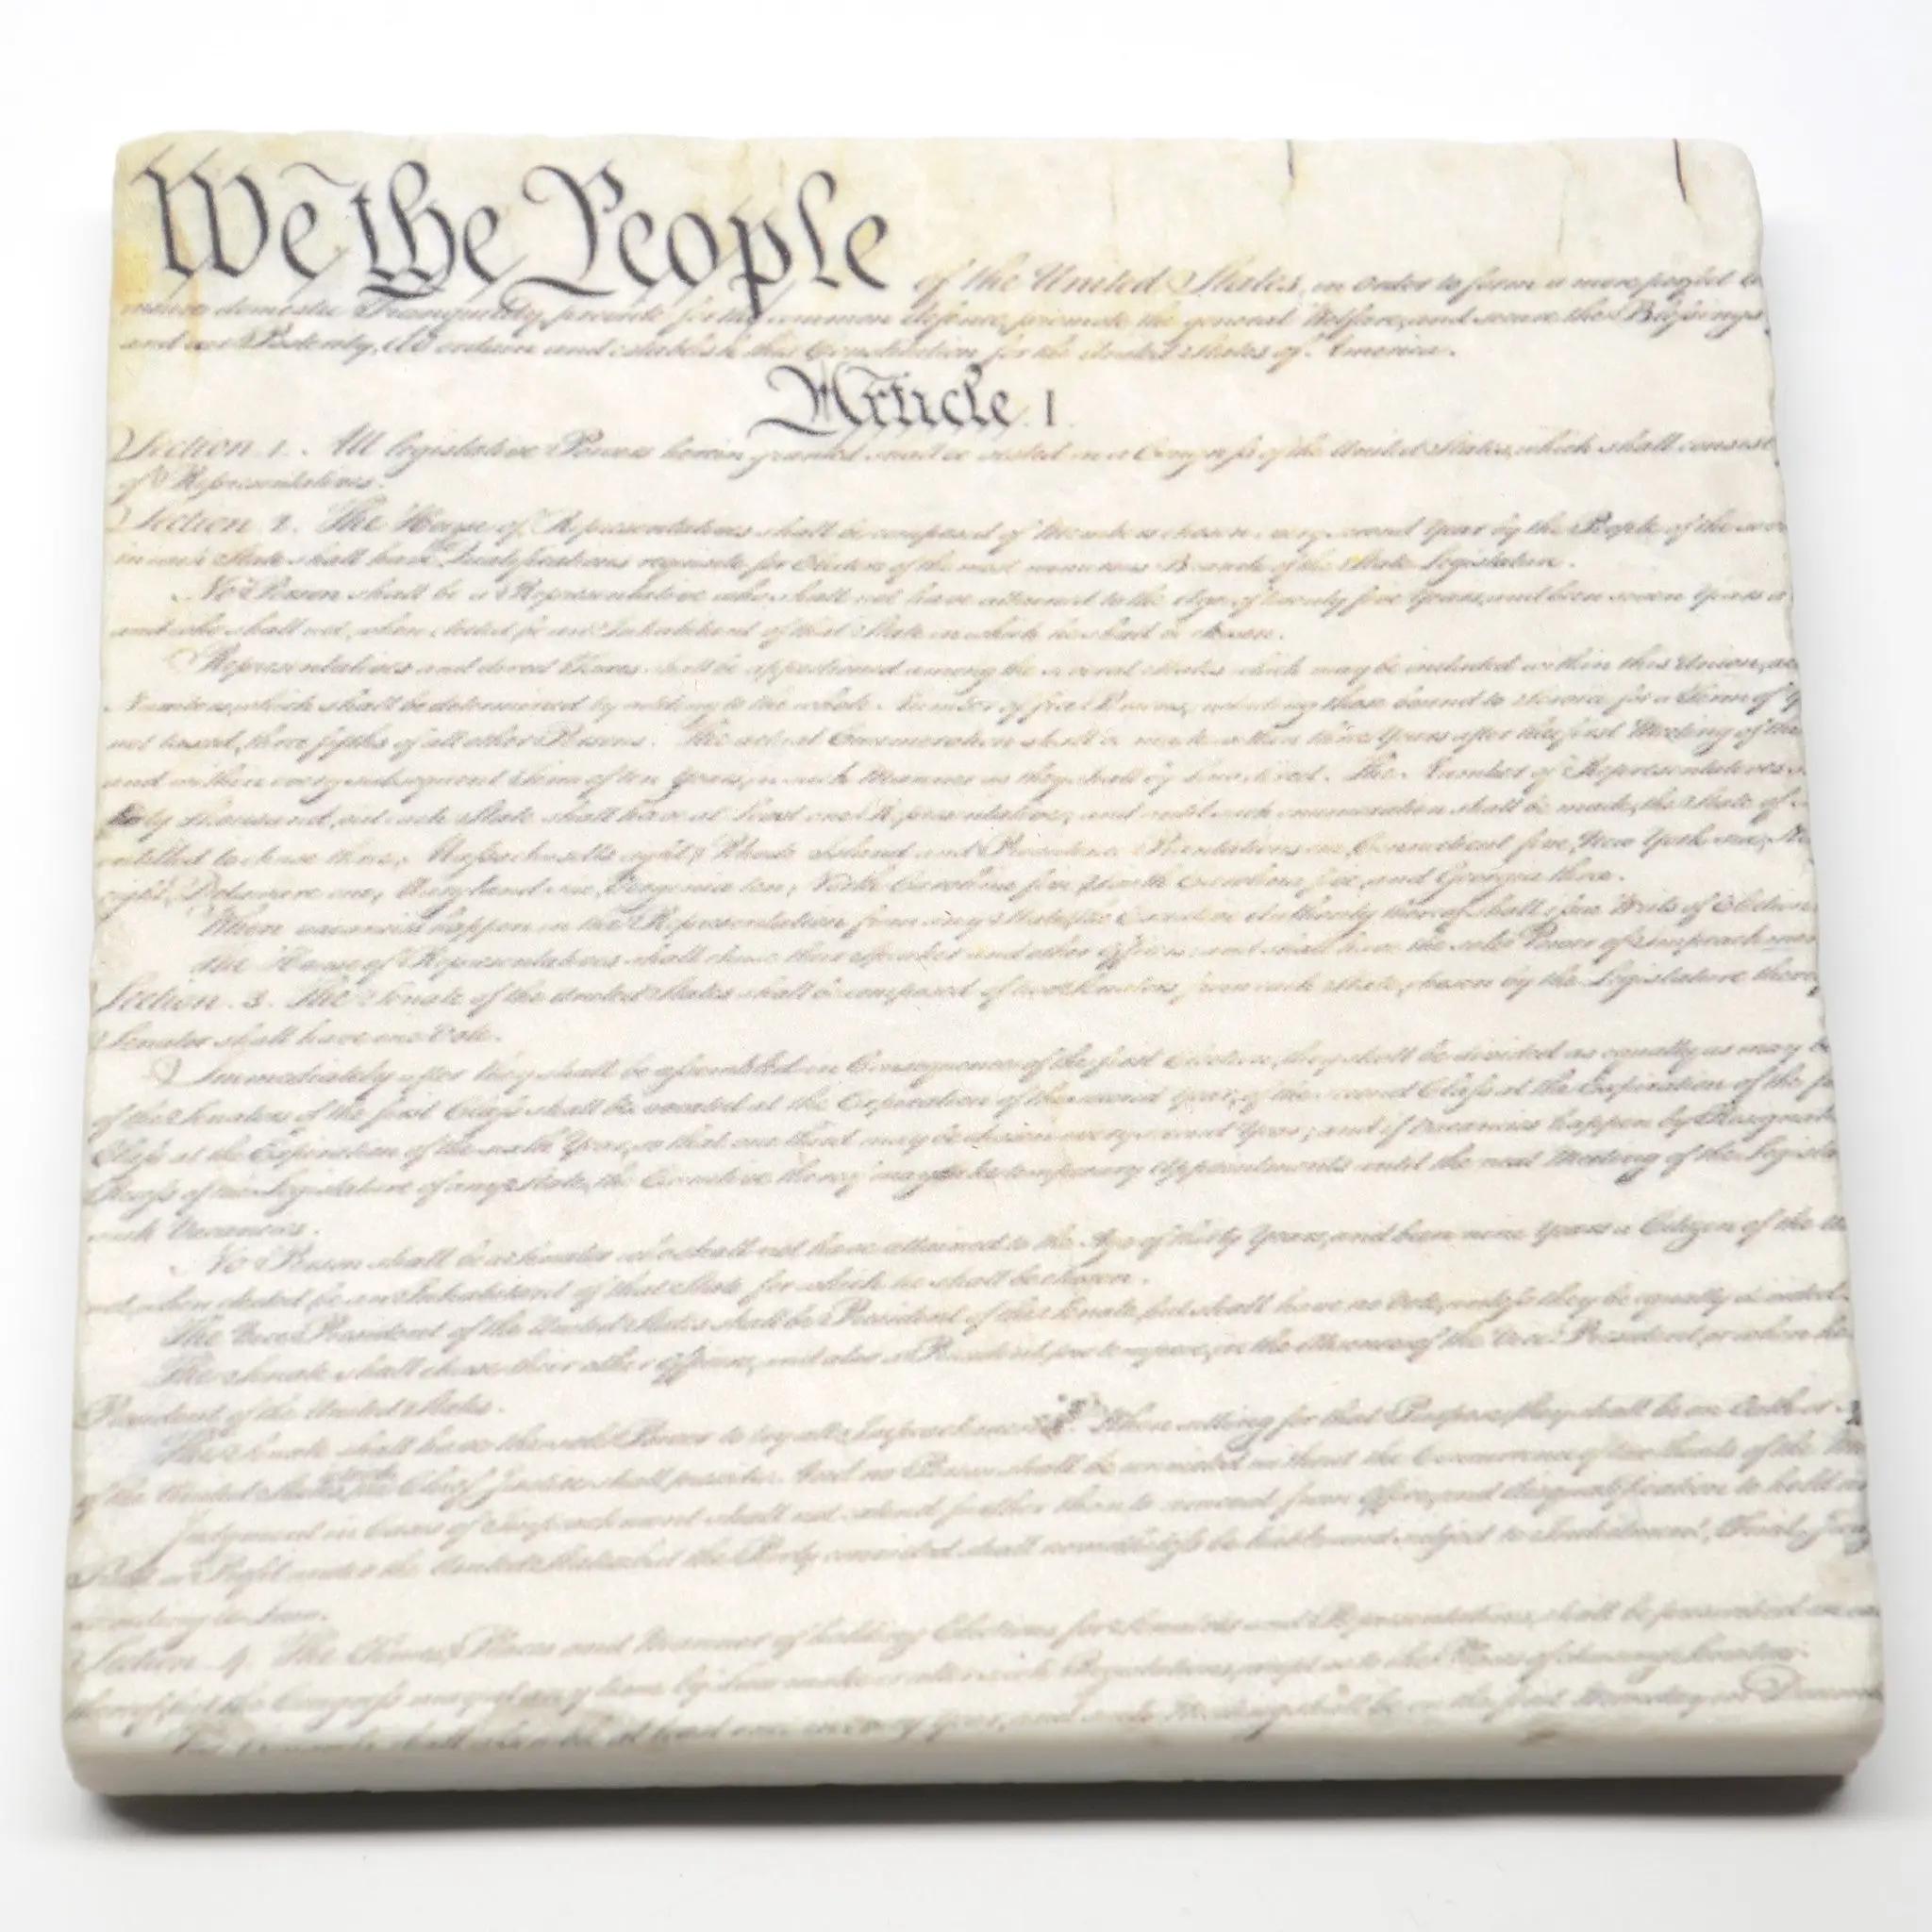 We the People of the United States, in Order to form a more perfect
domestic Tranquility, provide for the common defence, promote the general Welfare, and secure the Blessings
and our Posterity, do ordain and establish this Constitution for the United States of America.
Article. I.
Section. 1. All legislative Powers herein granted shall be vested in a Congress of the United States, which shall consist
of Representatives.
Section. 2. The House of Representatives shall be composed of Members chosen every second Year by the People of the
in each State shall have Qualifications requisite for Electors of the most numerous Branch of the State Legislature.
No Person shall be a Representative who shall not have attained to the Age of twenty five Years, and been seven Years a
and who shall not, when elected, be an Inhabitant of that State in which he shall be chosen.
Representatives and direct Taxes shall be apportioned among the several States which may be included within this Union,
Numbers, which shall be determined by adding to the whole Number of free Persons, including those bound to Service for a Term of
not taxed, three fifths of all other Persons. The actual Enumeration shall be made within three Years after the first Meeting of the
and within every subsequent Term of ten Years, in such Manner as they shall by Law direct. The Number of Representatives
thirty Thousand, but each State shall have at Least one Representative; and until such enumeration shall be made, the State of
entitled to chuse three, Massachusetts eight, Rhode Island and Providence Plantations one, Connecticut five, New York six,
eight, Delaware one, Maryland six, Virginia ten, North Carolina five, South Carolina five, and Georgia three.
When vacancies happen in the Representation from any State, the Executive Authority thereof shall issue Writs of Election
The House of Representatives shall chuse their Speaker and other Officers; and shall have the sole Power of Impeachment
Section. 3. The Senate of the United States shall be composed of two Senators from each State, chosen by the Legislature
Senator shall have one Vote.
Immediately after they shall be assembled in Consequence of the first Election, they shall be divided as equally as may
of the Senators of the first Class shall be vacated at the Expiration of the second Year, of the second Class at the Expiration of the
Class at the Expiration of the sixth Year, so that one third may be chosen every second Year; and if Vacancies happen by
Recess of the Legislature of any State, the Executive thereof may make temporary Appointments until the next Meeting of the
such Vacancies.
No Person shall be a Senator who shall not have attained to the Age of thirty Years, and been nine Years a Citizen of the
not, when elected, be an Inhabitant of that State for which he shall be chosen.
The Vice President of the United States shall be President of the Senate, but shall have no Vote, unless they be equally divided.
The Senate shall chuse their other Officers, and also a President pro tempore, in the Absence of the Vice President, or when he
President of the United States.
The Senate shall have the sole Power to try all Impeachments. When sitting for that Purpose, they shall be on Oath or
of the United States, the Chief Justice shall preside: And no Person shall be convicted without the Concurrence of two thirds of the
Judgment in Cases of Impeachment shall not extend further than to removal from Office, and disqualification to hold
Trust or Profit under the United States: but the Party convicted shall nevertheless be liable and subject to Indictment, Trial,
according to Law.
Section. 4. The Times, Places and Manner of holding Elections for Senators and Representatives, shall be prescribed in
thereof; but the Congress may at any time by Law make or alter such Regulations, except as to the Places of chusing Senators.
The Congress shall assemble at least once in every Year, and such Meeting shall be on the first Monday in